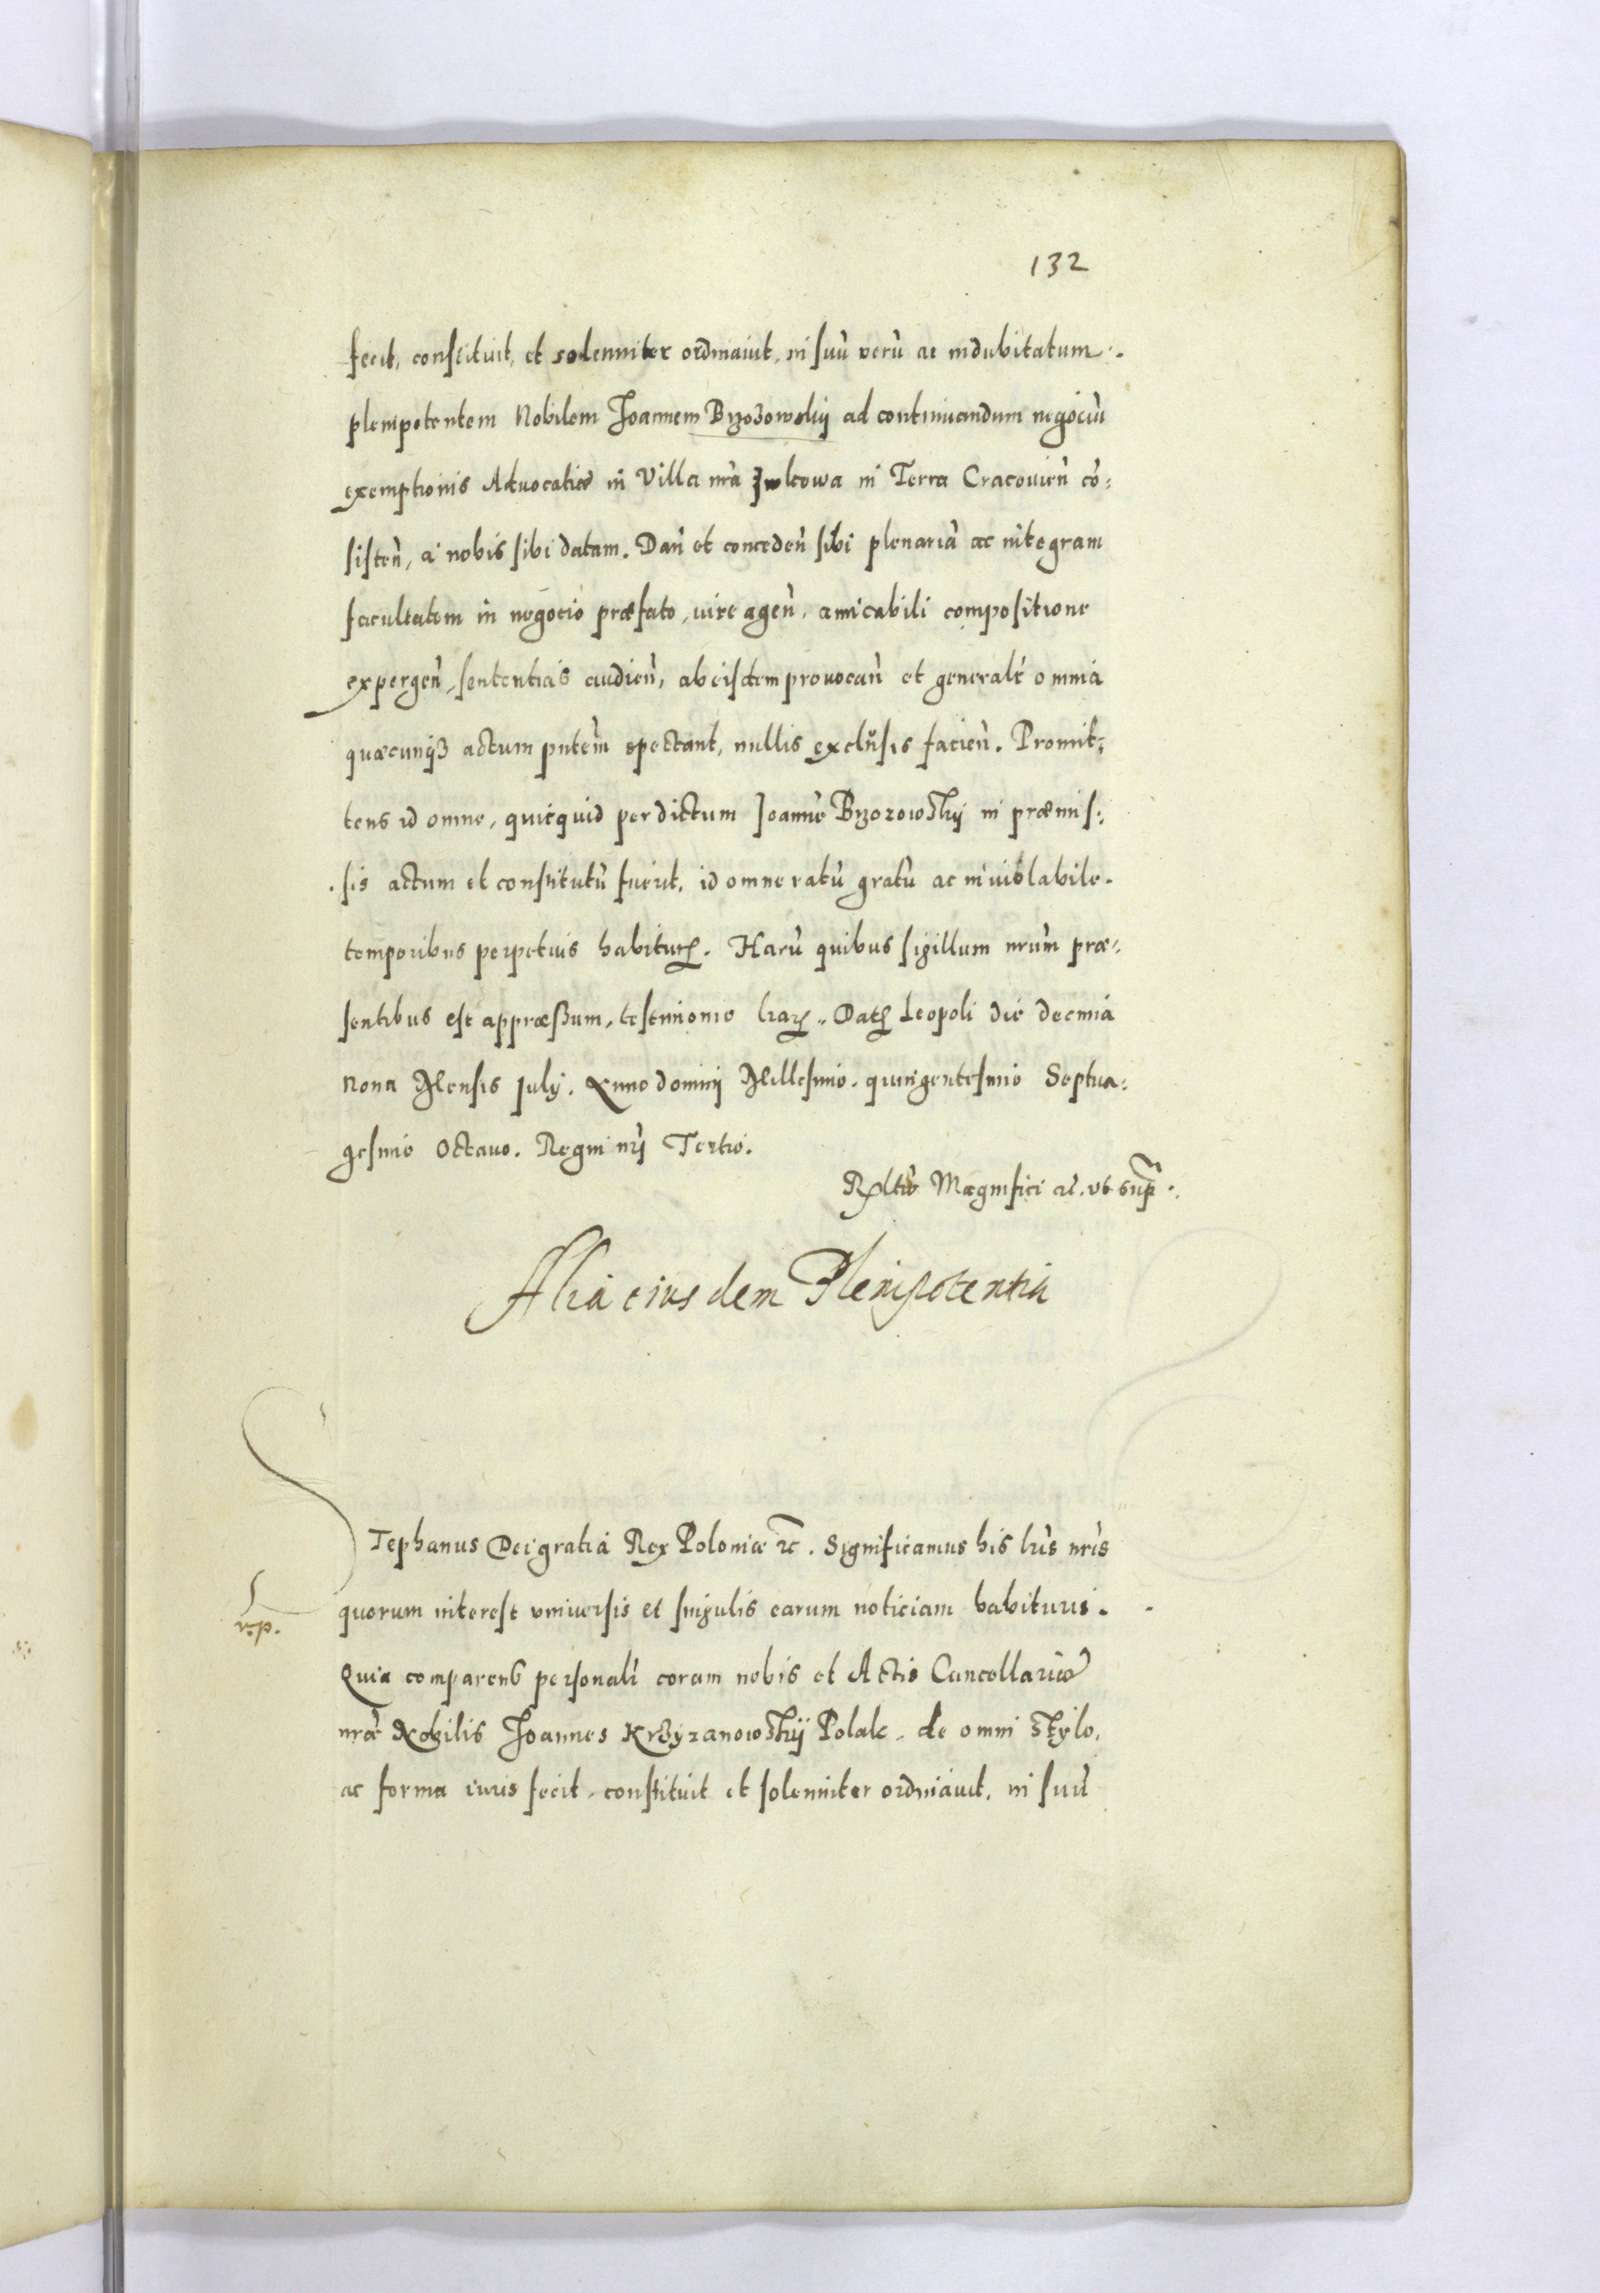 132
fecit, constituit, et solenniter ordinavit, in suũ verũ ac indubitatum
plenipotentem Nobilem Joannem Brzozowskij ad continuandum negociũ
exemptionis Advocatiæ in Villa nrã in Terra Cracovieñ cõ:
sisteñ, a nobis sibi datam. Dañ et concedeñ sibi plenariã ac integram
facultatem in negocio præfato, iure ageñ, amicabili compositione
expergeñ, sententias audieñ, ab eisdem provocañ et generalr̃ omnia
quæcunqȝ actum pñtem̃ spectant, nullis exclusis facieñ. Promit:
tens id omne, quicquid per dictum Joannẽ Brzozowskij in præmis:
sis actum et constitutũ fuerit, id omne ratũ gratũ ac inviolabile
temporibus perpetuis habiturꝝ. Harũ quibus sigillum nrũm præ:
sentibus est appræssum, testimonio lrarꝝ. Datꝝ Leopoli die decima
nona Mensis July. Anno dominj Millesimo quingentesimo Septua:
gesimo Octavo. Regni nrĩ Tertio.
Rxltio Magnifici etc. ut supr̃.
Alia eiusdem Plenipotentia
Stephanus Dei gratia Rex Poloniæ etc. Significamus his lrĩs nrĩs
quorum interest universis et singulis earum noticiam habituris.
r.p.
Quia comparens personalr̃ coram nobis et Actis Cancellariæ
nræ Nobilis Joannes Krzyzanowskij Polak, de omni stylo,
ac forma iuris fecit, constituit et solenniter ordinavit, in suũ